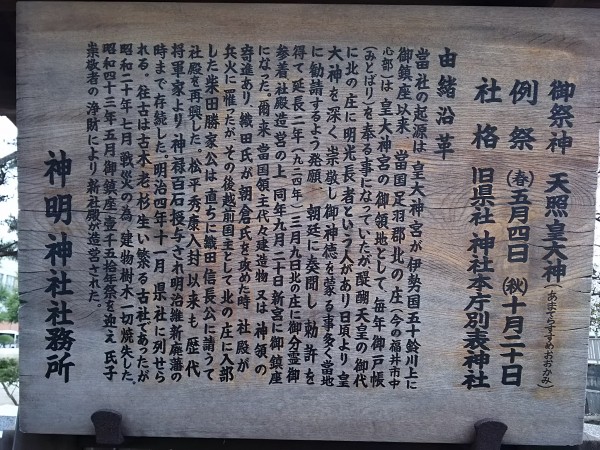 御祭神 天照皇大神(あまてらすすめおおかみ)
例祭 (春)五月四日 (秋)十月二十日
社格 旧県社 神社本庁別表神社
由緒沿革
當社の起源は 皇大神宮が伊勢国五十鈴川上に
御鎮座以来 當国足羽郡北の庄(今の福井市中
心部)は 皇大神宮の御領地として 毎年 御戸帳
(みとばり)を奉る事になっていたが 醍醐天皇の御代
に北の庄に明光長者という人があり日頃より 皇
大神を 深く崇敬し 御神徳を蒙る事多く當地
に勧請するよう発願 朝廷に奏聞し 勅許を
得て 延長二年(九二四年)三月九日北の庄に御分霊御
参着 社殿造営の上 同年九月二十日新宮に御鎮座
になった。爾来 當国領主代々建造物 又は 神領の
寄進あり、織田氏が朝倉氏を攻めた時 社殿が
兵火に罹ったが その後越前国主として 北の庄に入部
した 柴田勝家公は 直ちに織田信長公に請うて
社殿を再興した。松平秀康入封以来も 歴代
将軍家より 神禄百石授与され明治維新廃藩の
時まで存続した。明治四年十一月 県社に列せら
れる。往古は古木老杉生い繁る古社であったが
昭和二十年七月戦災の為 建物樹木一切焼失した。
昭和四十三年五月御鎮座壹千五拾年祭を迎え 氏子
崇敬者の浄財により新社殿が造営された。
神明神社社務所